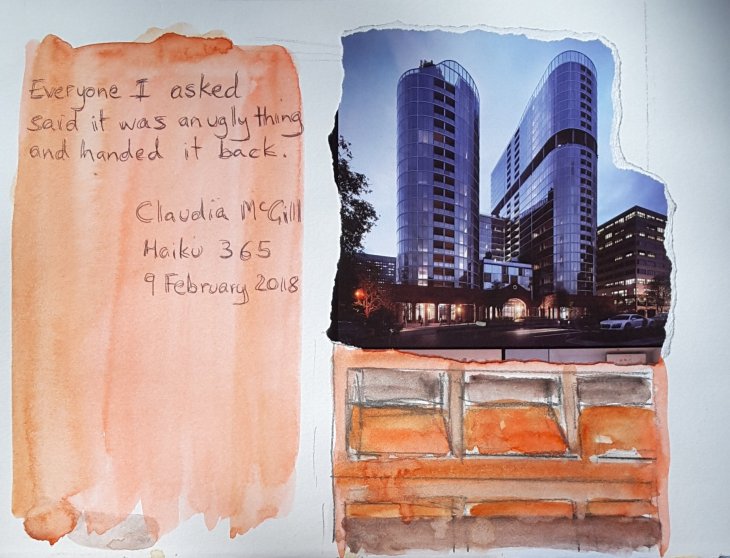 Everyone I asked
said it was an ugly thing
and handed it back.
Claudia McGill
Haiku 365
9 February 2018